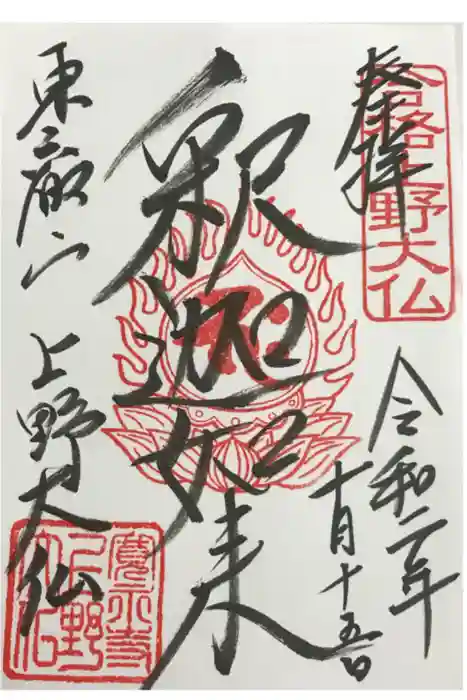 奉拝
合格上野大仏
令和二年
十月十五日
釈迦如来
東叡山
上野大仏
寛永寺
上野
大仏